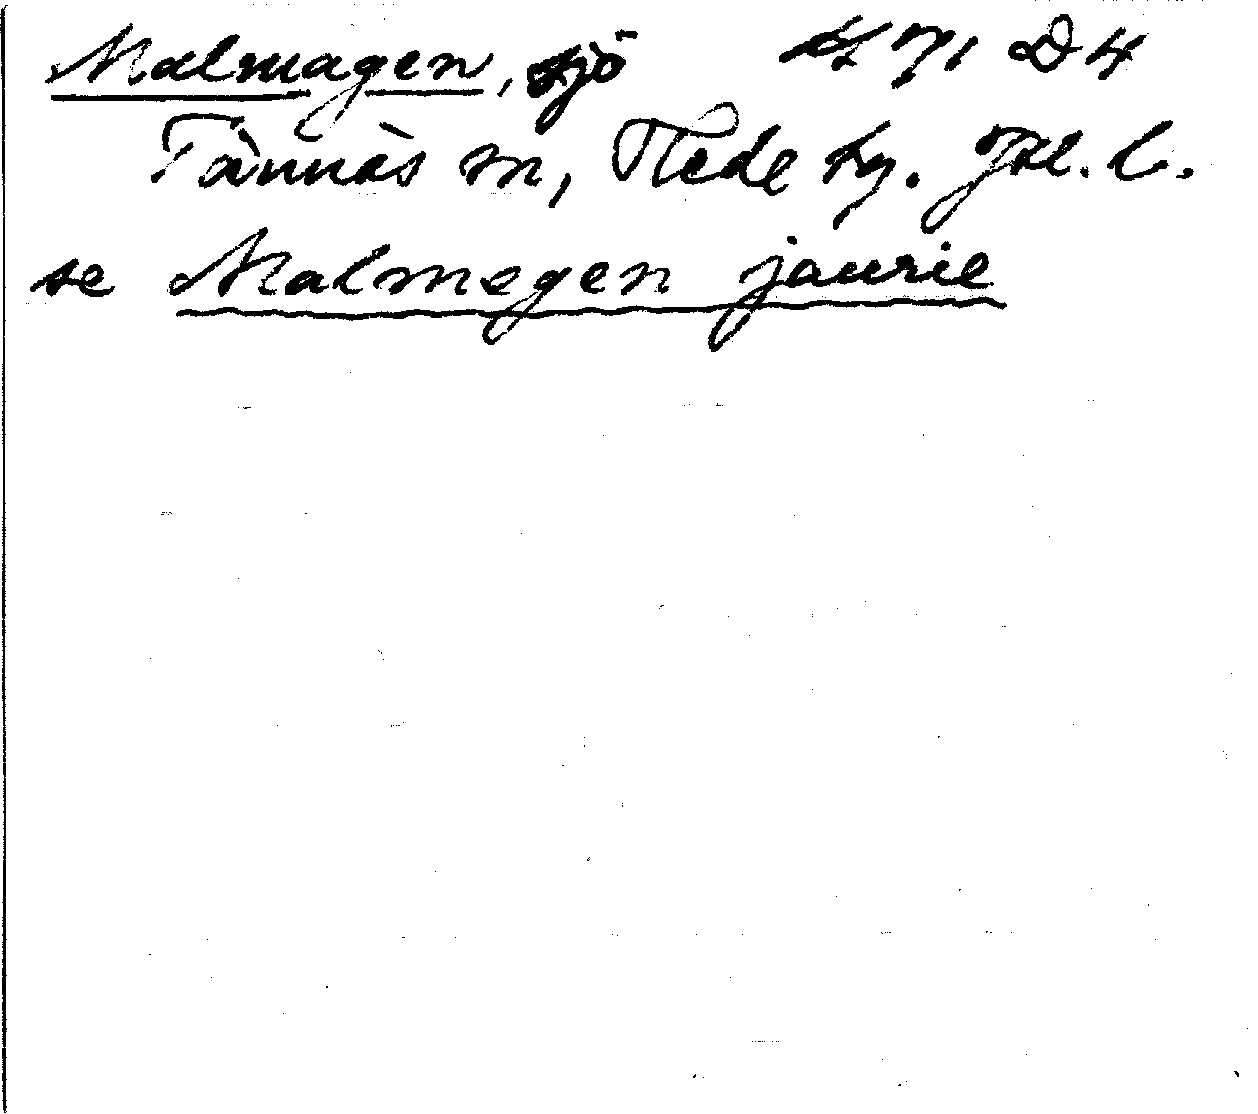 Malmagen, sjö 71 D4
Tännäs sn, Hede tg. Jtl. l.
se Malmegen jaurie